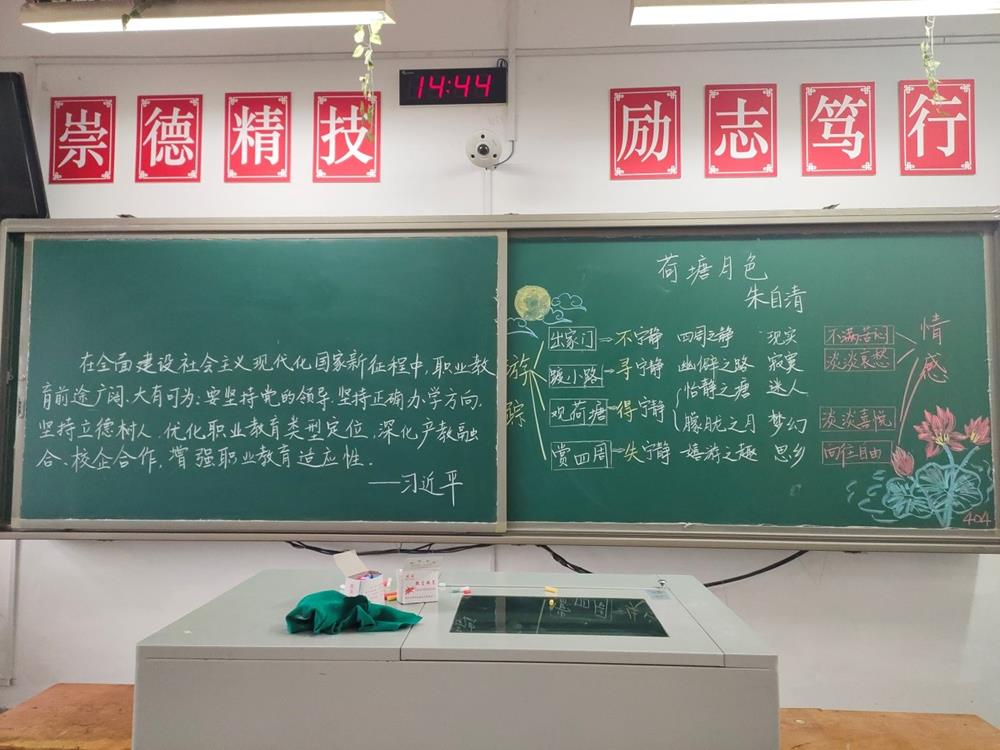 崇德精技
14:44
励志笃行
在全面建设社会主义现代化国家新征程中,职业教
育前途广阔、大有可为;要坚持党的领导,坚持正确办学方向,
坚持立德树人,优化职业教育类型定位,深化产教融
合、校企合作,增强职业教育适应性.
——习近平
荷塘月色
朱自清
游踪
出家门→不宁静 四周之静 现实
踱小路→寻宁静 幽僻之路 寂寞
观荷塘→得宁静
怡静之塘 迷人
朦胧之月 梦幻
赏四周→失宁静 嬉游之趣 思乡
不满苦闷
淡淡哀愁
淡淡喜悦
向往自由
情感
404